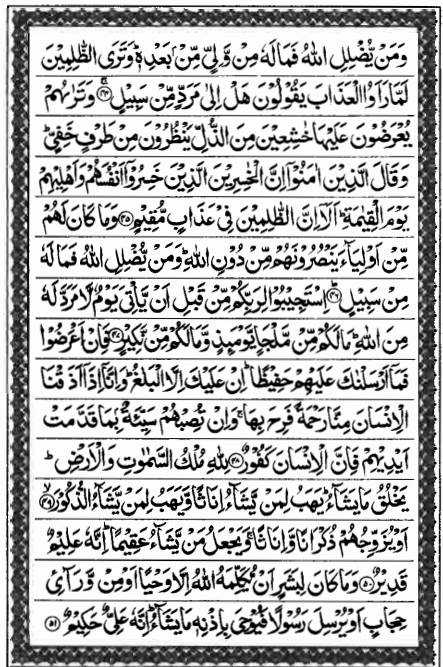 وَمَنْ يُّضْلِلِ اللّٰهُ فَمَا لَهٗ مِنْ وَّلِيٍّ مِّنْۢ بَعْدِهٖؕ وَتَرَى الظّٰلِمِيْنَ
لَمَّا رَاَوُا الْعَذَابَ يَقُوْلُوْنَ هَلْ اِلٰى مَرَدٍّ مِّنْ سَبِيْلٍۚ ﴿۴۴﴾ وَتَرٰىهُمْ
يُعْرَضُوْنَ عَلَيْهَا خٰشِعِيْنَ مِنَ الذُّلِّ يَنْظُرُوْنَ مِنْ طَرْفٍ خَفِيٍّؕ
وَقَالَ الَّذِيْنَ اٰمَنُوْۤا اِنَّ الْخٰسِرِيْنَ الَّذِيْنَ خَسِرُوْۤا اَنْفُسَهُمْ وَاَهْلِيْهِمْ
يَوْمَ الْقِيٰمَةِؕ اَلَاۤ اِنَّ الظّٰلِمِيْنَ فِيْ عَذَابٍ مُّقِيْمٍ ﴿۴۵﴾ وَمَا كَانَ لَهُمْ
مِّنْ اَوْلِيَآءَ يَنْصُرُوْنَهُمْ مِّنْ دُوْنِ اللّٰهِؕ وَمَنْ يُّضْلِلِ اللّٰهُ فَمَا لَهٗ
مِنْ سَبِيْلٍؕ ﴿۴۶﴾ اِسْتَجِيْبُوْا لِرَبِّكُمْ مِّنْ قَبْلِ اَنْ يَّاْتِيَ يَوْمٌ لَّا مَرَدَّ لَهٗ
مِنَ اللّٰهِؕ مَا لَكُمْ مِّنْ مَّلْجَاٍ يَّوْمَئِذٍ وَّمَا لَكُمْ مِّنْ نَّكِيْرٍ ﴿۴۷﴾ فَاِنْ اَعْرَضُوْا
فَمَاۤ اَرْسَلْنٰكَ عَلَيْهِمْ حَفِيْظًاؕ اِنْ عَلَيْكَ اِلَّا الْبَلٰغُؕ وَاِنَّاۤ اِذَاۤ اَذَقْنَا
الْاِنْسَانَ مِنَّا رَحْمَةً فَرِحَ بِهَاۚ وَاِنْ تُصِبْهُمْ سَيِّئَةٌۢ بِمَا قَدَّمَتْ
اَيْدِيْهِمْ فَاِنَّ الْاِنْسَانَ كَفُوْرٌ ﴿۴۸﴾ لِلّٰهِ مُلْكُ السَّمٰوٰتِ وَالْاَرْضِؕ
يَخْلُقُ مَا يَشَآءُؕ يَهَبُ لِمَنْ يَّشَآءُ اِنَاثًا وَّيَهَبُ لِمَنْ يَّشَآءُ الذُّكُوْرَۙ ﴿۴۹﴾
اَوْ يُزَوِّجُهُمْ ذُكْرَانًا وَّاِنَاثًاۚ وَيَجْعَلُ مَنْ يَّشَآءُ عَقِيْمًاؕ اِنَّهٗ عَلِيْمٌ
قَدِيْرٌ ﴿۵۰﴾ وَمَا كَانَ لِبَشَرٍ اَنْ يُّكَلِّمَهُ اللّٰهُ اِلَّا وَحْيًا اَوْ مِنْ وَّرَآئِ
حِجَابٍ اَوْ يُرْسِلَ رَسُوْلًا فَيُوْحِيَ بِاِذْنِهٖ مَا يَشَآءُؕ اِنَّهٗ عَلِيٌّ حَكِيْمٌ ﴿۵۱﴾